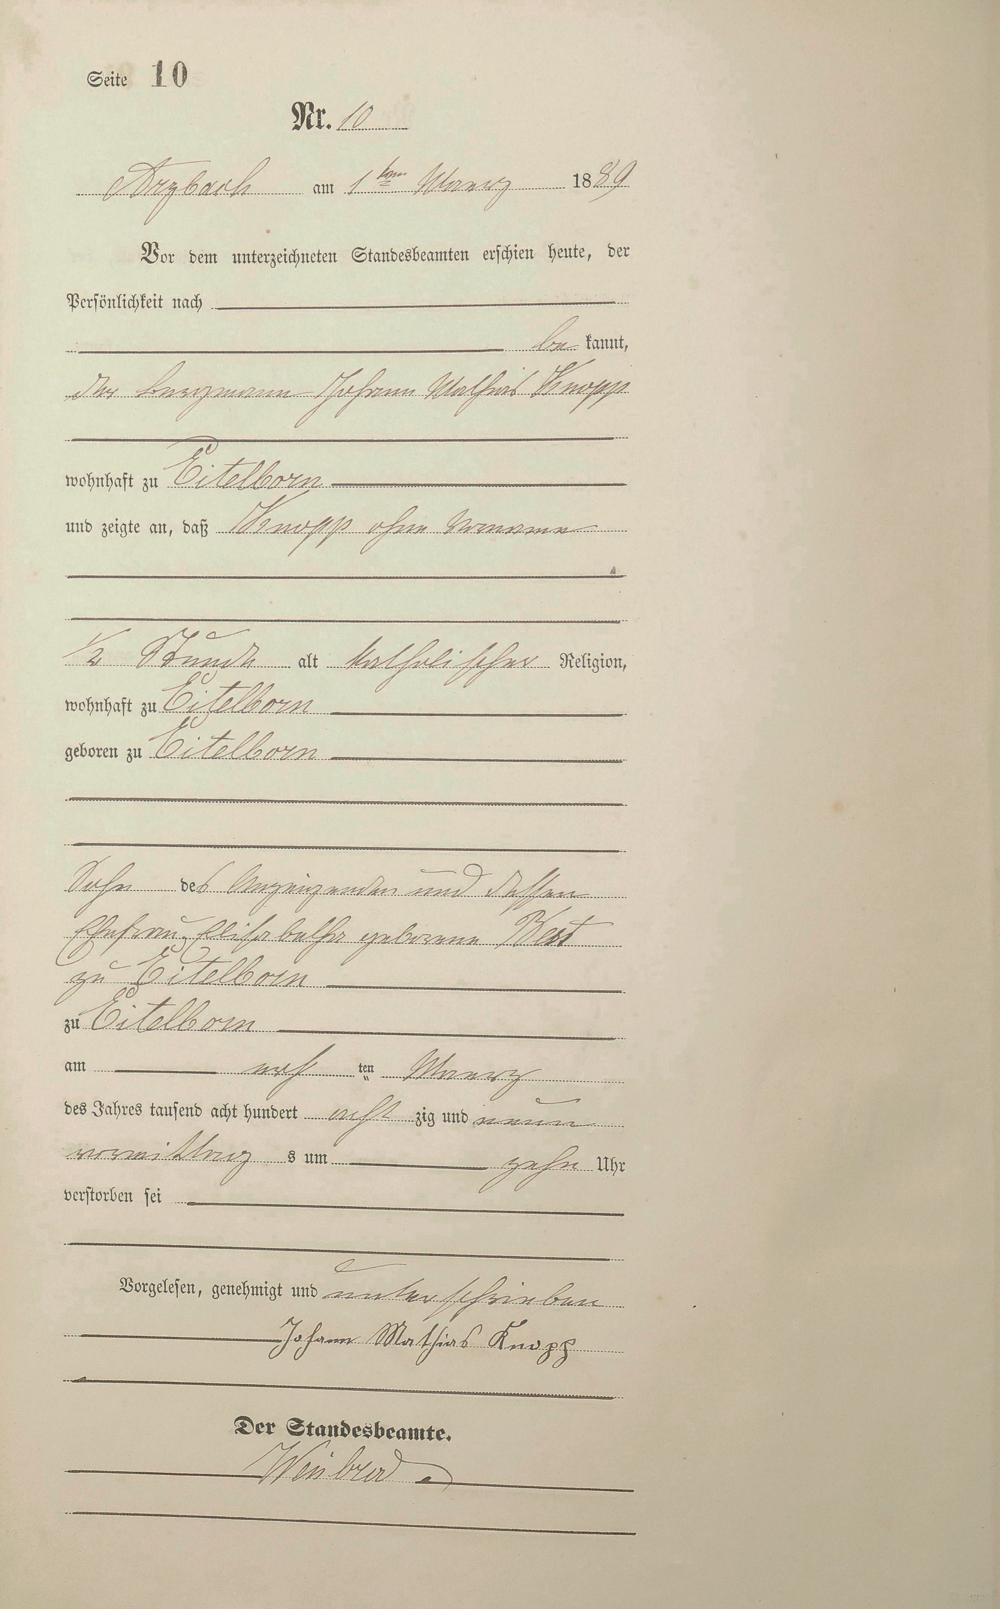 Seite 10
Nr. 10
Arzbach am 1 ten Maerz 1889
Vor dem unterzeichneten Standesbeamten erschien heute, der
Persönlichkeit nach
be kannt,
der Bergmann Johann Mathias Knopp
wohnhaft zu Eitelborn
und zeigte an, daß Knopp ohne Vorname
1/2 Stunde alt katholischer Religion,
wohnhaft zu Eitelborn
geboren zu Eitelborn
Sohn des Anzeigenden und dessen
Ehefrau Elisabetha geborene Best
zu Eitelborn
zu Eitelborn
am ten Maerz
des Jahres tausend acht hundert acht zig und neun
vormittag s um zehn Uhr
verstorben sei
Vorgelesen, genehmigt und unterschrieben
Johann Mathias Knopp
Der Standesbeamte.
Weinbrod